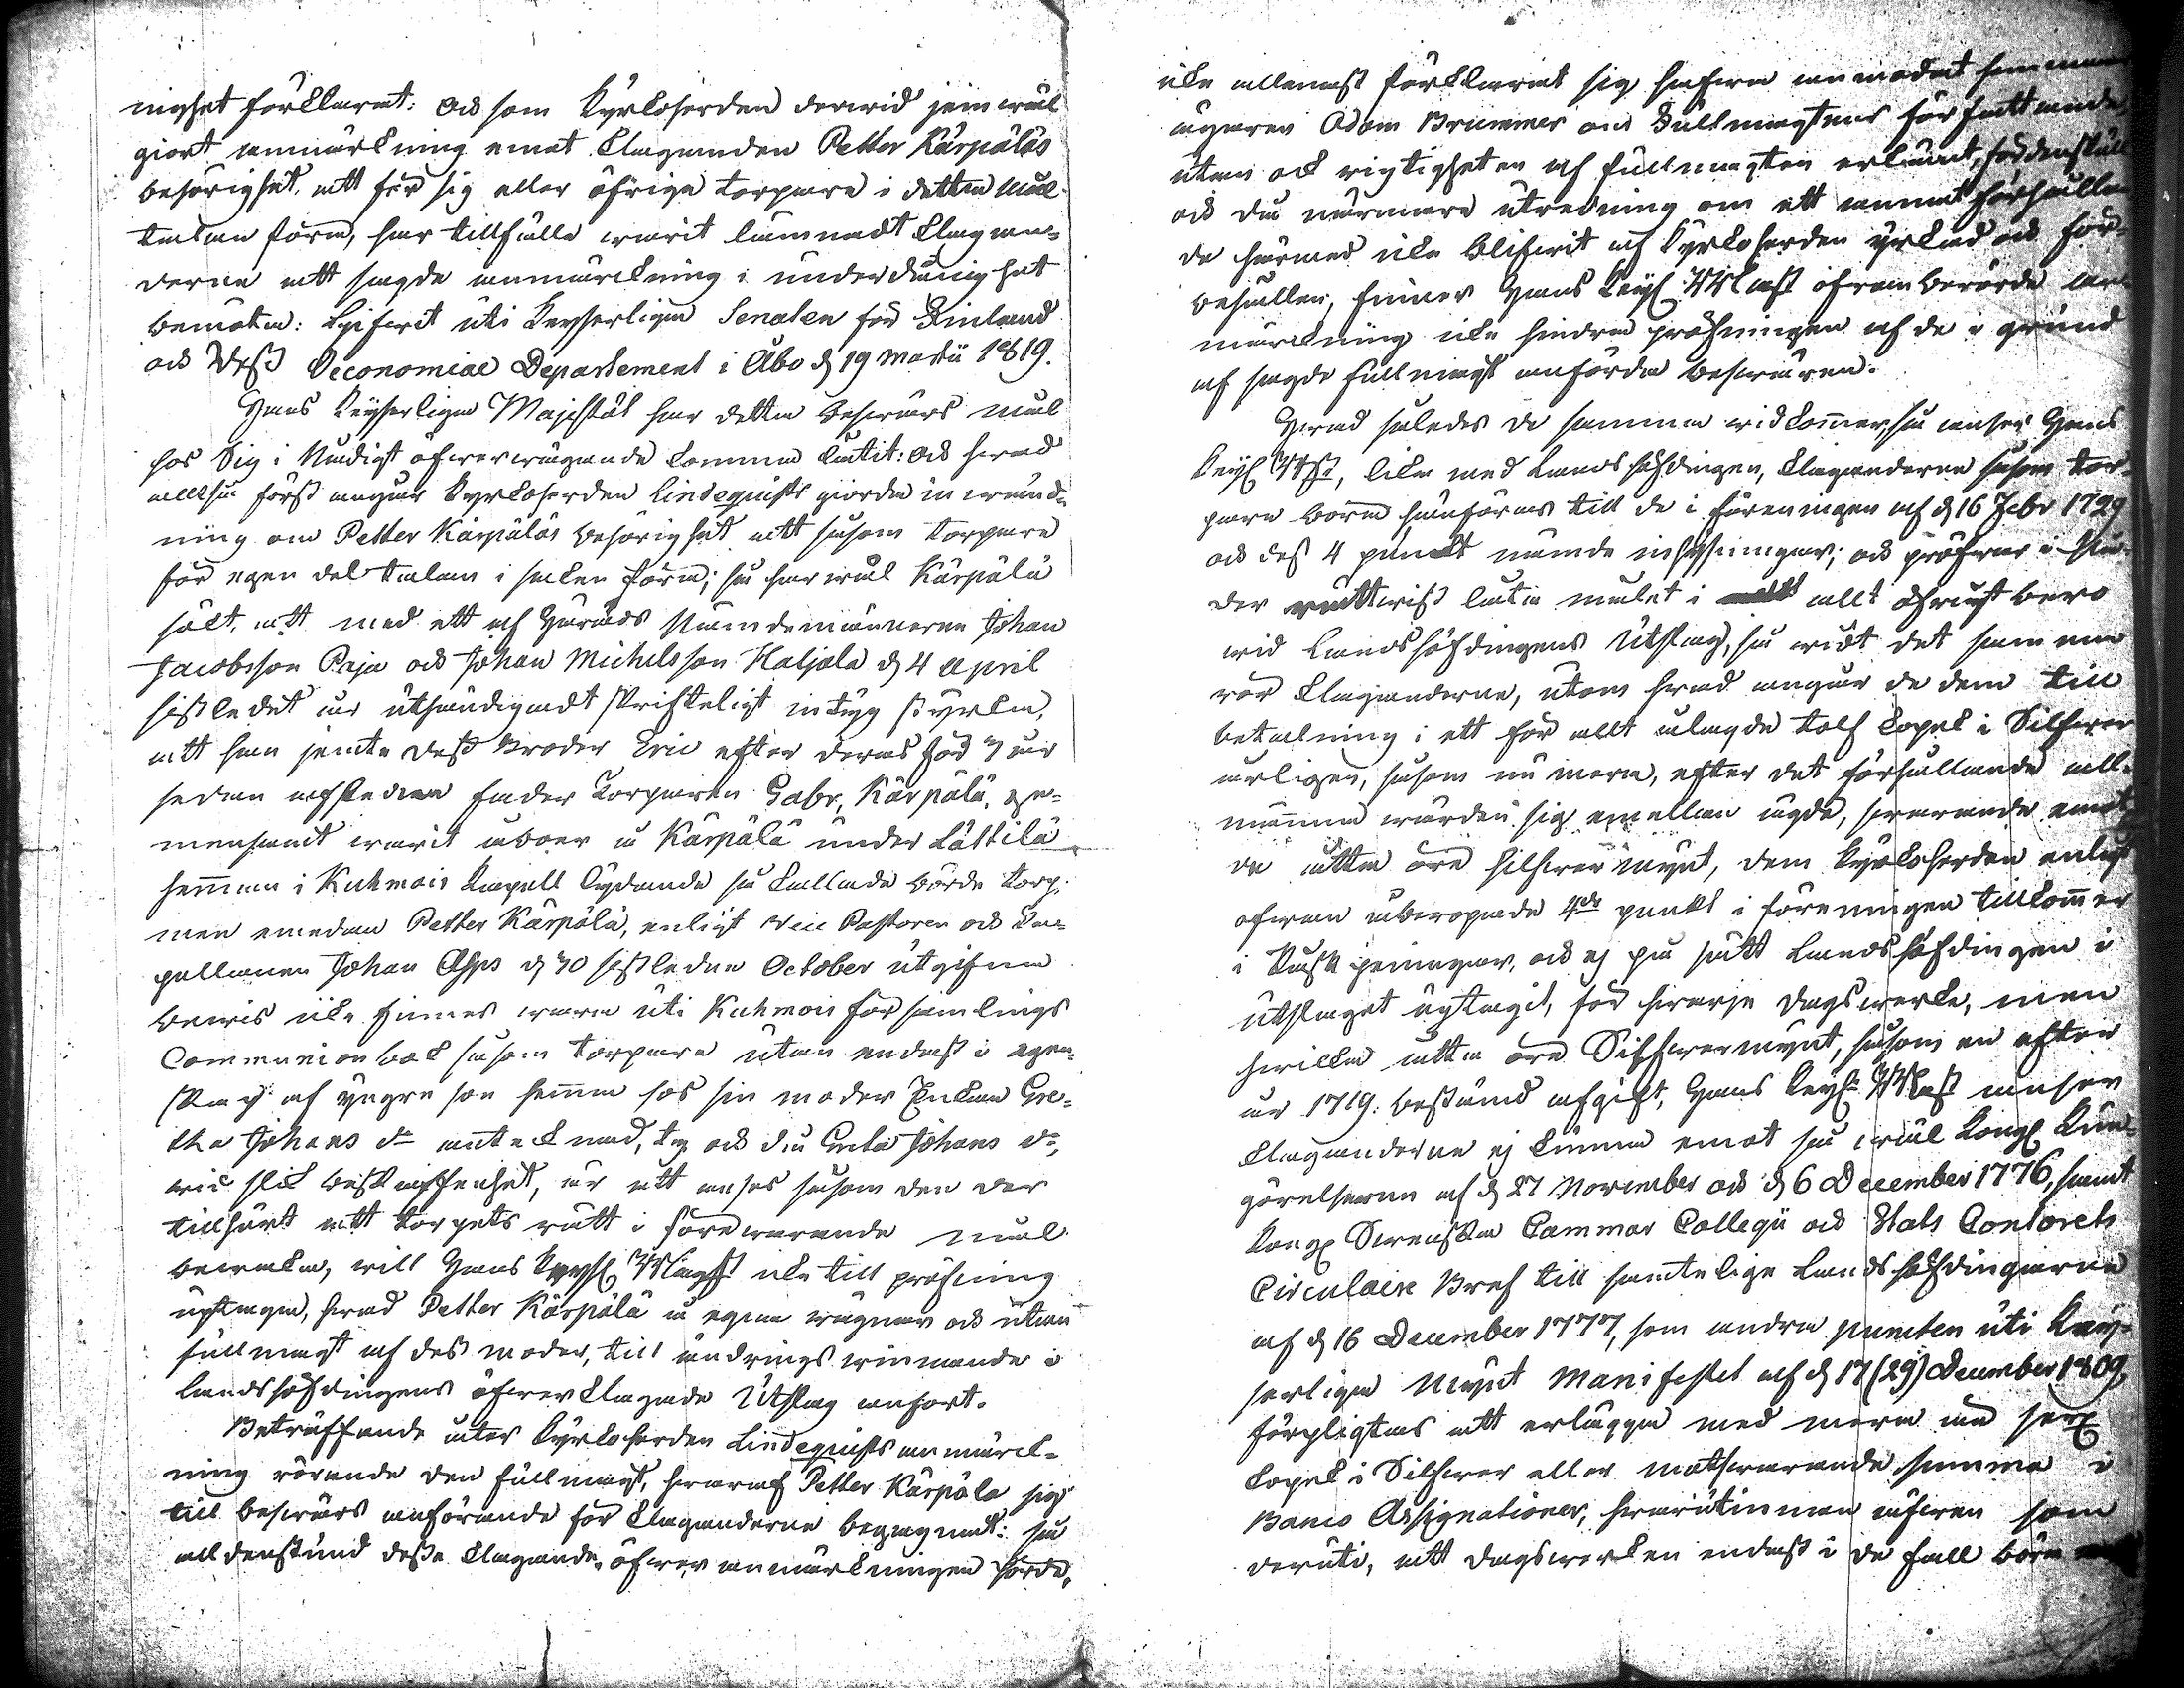 nighet förklarat: Och som Kyrkoherden derwid jemwäl
giort anmärkning emot Klaganden Petter Kärpäläs
behörighet, att för sig eller öfriga torpare i detta mål
talan föra, har tillfälle warit lämnadt Klagan-
derne att sagde anmärkning i underdånighet
bemöta: Gifwit uti Keyserliga Senaten för Finland
och Dess Oeconomiae Departement i Åbo d 19 Martii 1819.
Hans Keyserliga Majestät har detta beswärs mål
hos Sig i Nådigt öfwerwägande komma låtit: Och hwad
alltså först angår Kyrkoherden Lindequists giorda inwänd-
ning om Petter Kärpäläs behörighet att såsom torpare
för egen del talan i saken föra; så har wäl Kärpälä
sökt, att med ett af Härads Nämndemännerne Johan
Jacobsson Peja och Johan Michelsson Haljala d 4 April
sistledet år utfärdigadt skrifteligt intyg styrka,
att han jemte dess Broder Eric efter deras för 7 år
sedan afledne fader Torparen Gabr. Kärpälä, ge-
mensamt warit åboer å Kärpälä under Lästilä
hemman i Kuhmois Kapell lydande så kallade börde torp;
men emedan Petter Kärpälä, enligt Vice Pastoren och Ka-
pellanen Johan Asps d 30 sistledne October utgifne
bewis icke finnes wara uti Kuhmois församlings
Communionbok såsom torpare utan endast i egen-
skap af yngre son hemma hos sin moder Enkan Gre-
tha Johans dr antecknad, ty och då Greta Johans dr,
wid slik beskaffenhet, är att anses såsom den der
tillhört att torpets rätt i förewarande mål
bewaka, will Hans Keys. Majst icke till pröfning
upptaga, hwad Petter Kärpälä å egna wägnar och utan
fullmagt af dess moder, till ändrings winnande i
Landshöfdingens öfwerklagade Utslag anfört.
Beträffande åter Kyrkoherden Lindequists anmärk-
ning rörande den fullmagt, hwaraf Petter Kärpälä sig
till beswärs anförande för Klaganderne begagnat: så
alldenstund desse Klagande, öfwer anmärkningen hörde,
icke allenast förklarat sig hafwa anmodat hemmans
ägaren Adam Brummer om fullmagtens författande
utan ock rigtigheten af fullmagten erkändt, fördenskull
och då närmare utredning om ett annat förhållan
de härmed icke blifwit af Kyrkoherden yrkad och för-
behållen, finner Hans Keys. Majst ofwanberörde an-
märkning icke hindra pröfningen af de i grund
af sagde fullmagt anförda beswären.
Hwad således de samma widkommer, så anser Hans
Keys Mst, lika med Landshöfdingen, Klaganderne såsom tor-
pare böra hänföras till de i föreningen af d 16 Febr 1729
och dess 4 punkt nämde inhysningar; och pröfwar i Nå-
der rättwist låta målet i allt öfrigt bero
wid Landshöfdingens Utslag, så widt det samma
rör Klaganderne, utom hwad angår de dem till
betalning i ett för allt ålagde tolf Kopek i Silfwer
årligen, såsom nu mera, efter det förhållande all-
männa wärden sig emellan ägde, swarande emot
de åtta öre silfwermynt, dem Kyrkoherden enligt
ofwan åberopade 4de punkt i föreningen tillkommer
i påsk penningar, och ej på sätt Landshöfdingen i
utslaget upptagit, för hwarje dagswerke, men
hwilka åtta öre Silfwermynt, såsom en efter
år 1719. bestämd afgift, Hans Keysl Majst anser
Klaganderne ej kunna emot så wäl Kongl. Kun-
görelserna af d 27 November och d 6 December 1776, samt
Kongl Swenska Cammar Collegii och Stats Contorets
Circulaire Bref till samtelige Landshöfdingarne
af d 16 December 1777, som andra puncten uti Kej-
serliga Mynt Manifestet af d 17 (29) December 1809,
förpligtas att erlägga med mera än sex
Kopek i Silfwer eller motswarande summa i
Banco Assignationer, hwarutinnan äfwen som
deruti, att dagswerken endast i de fall böra